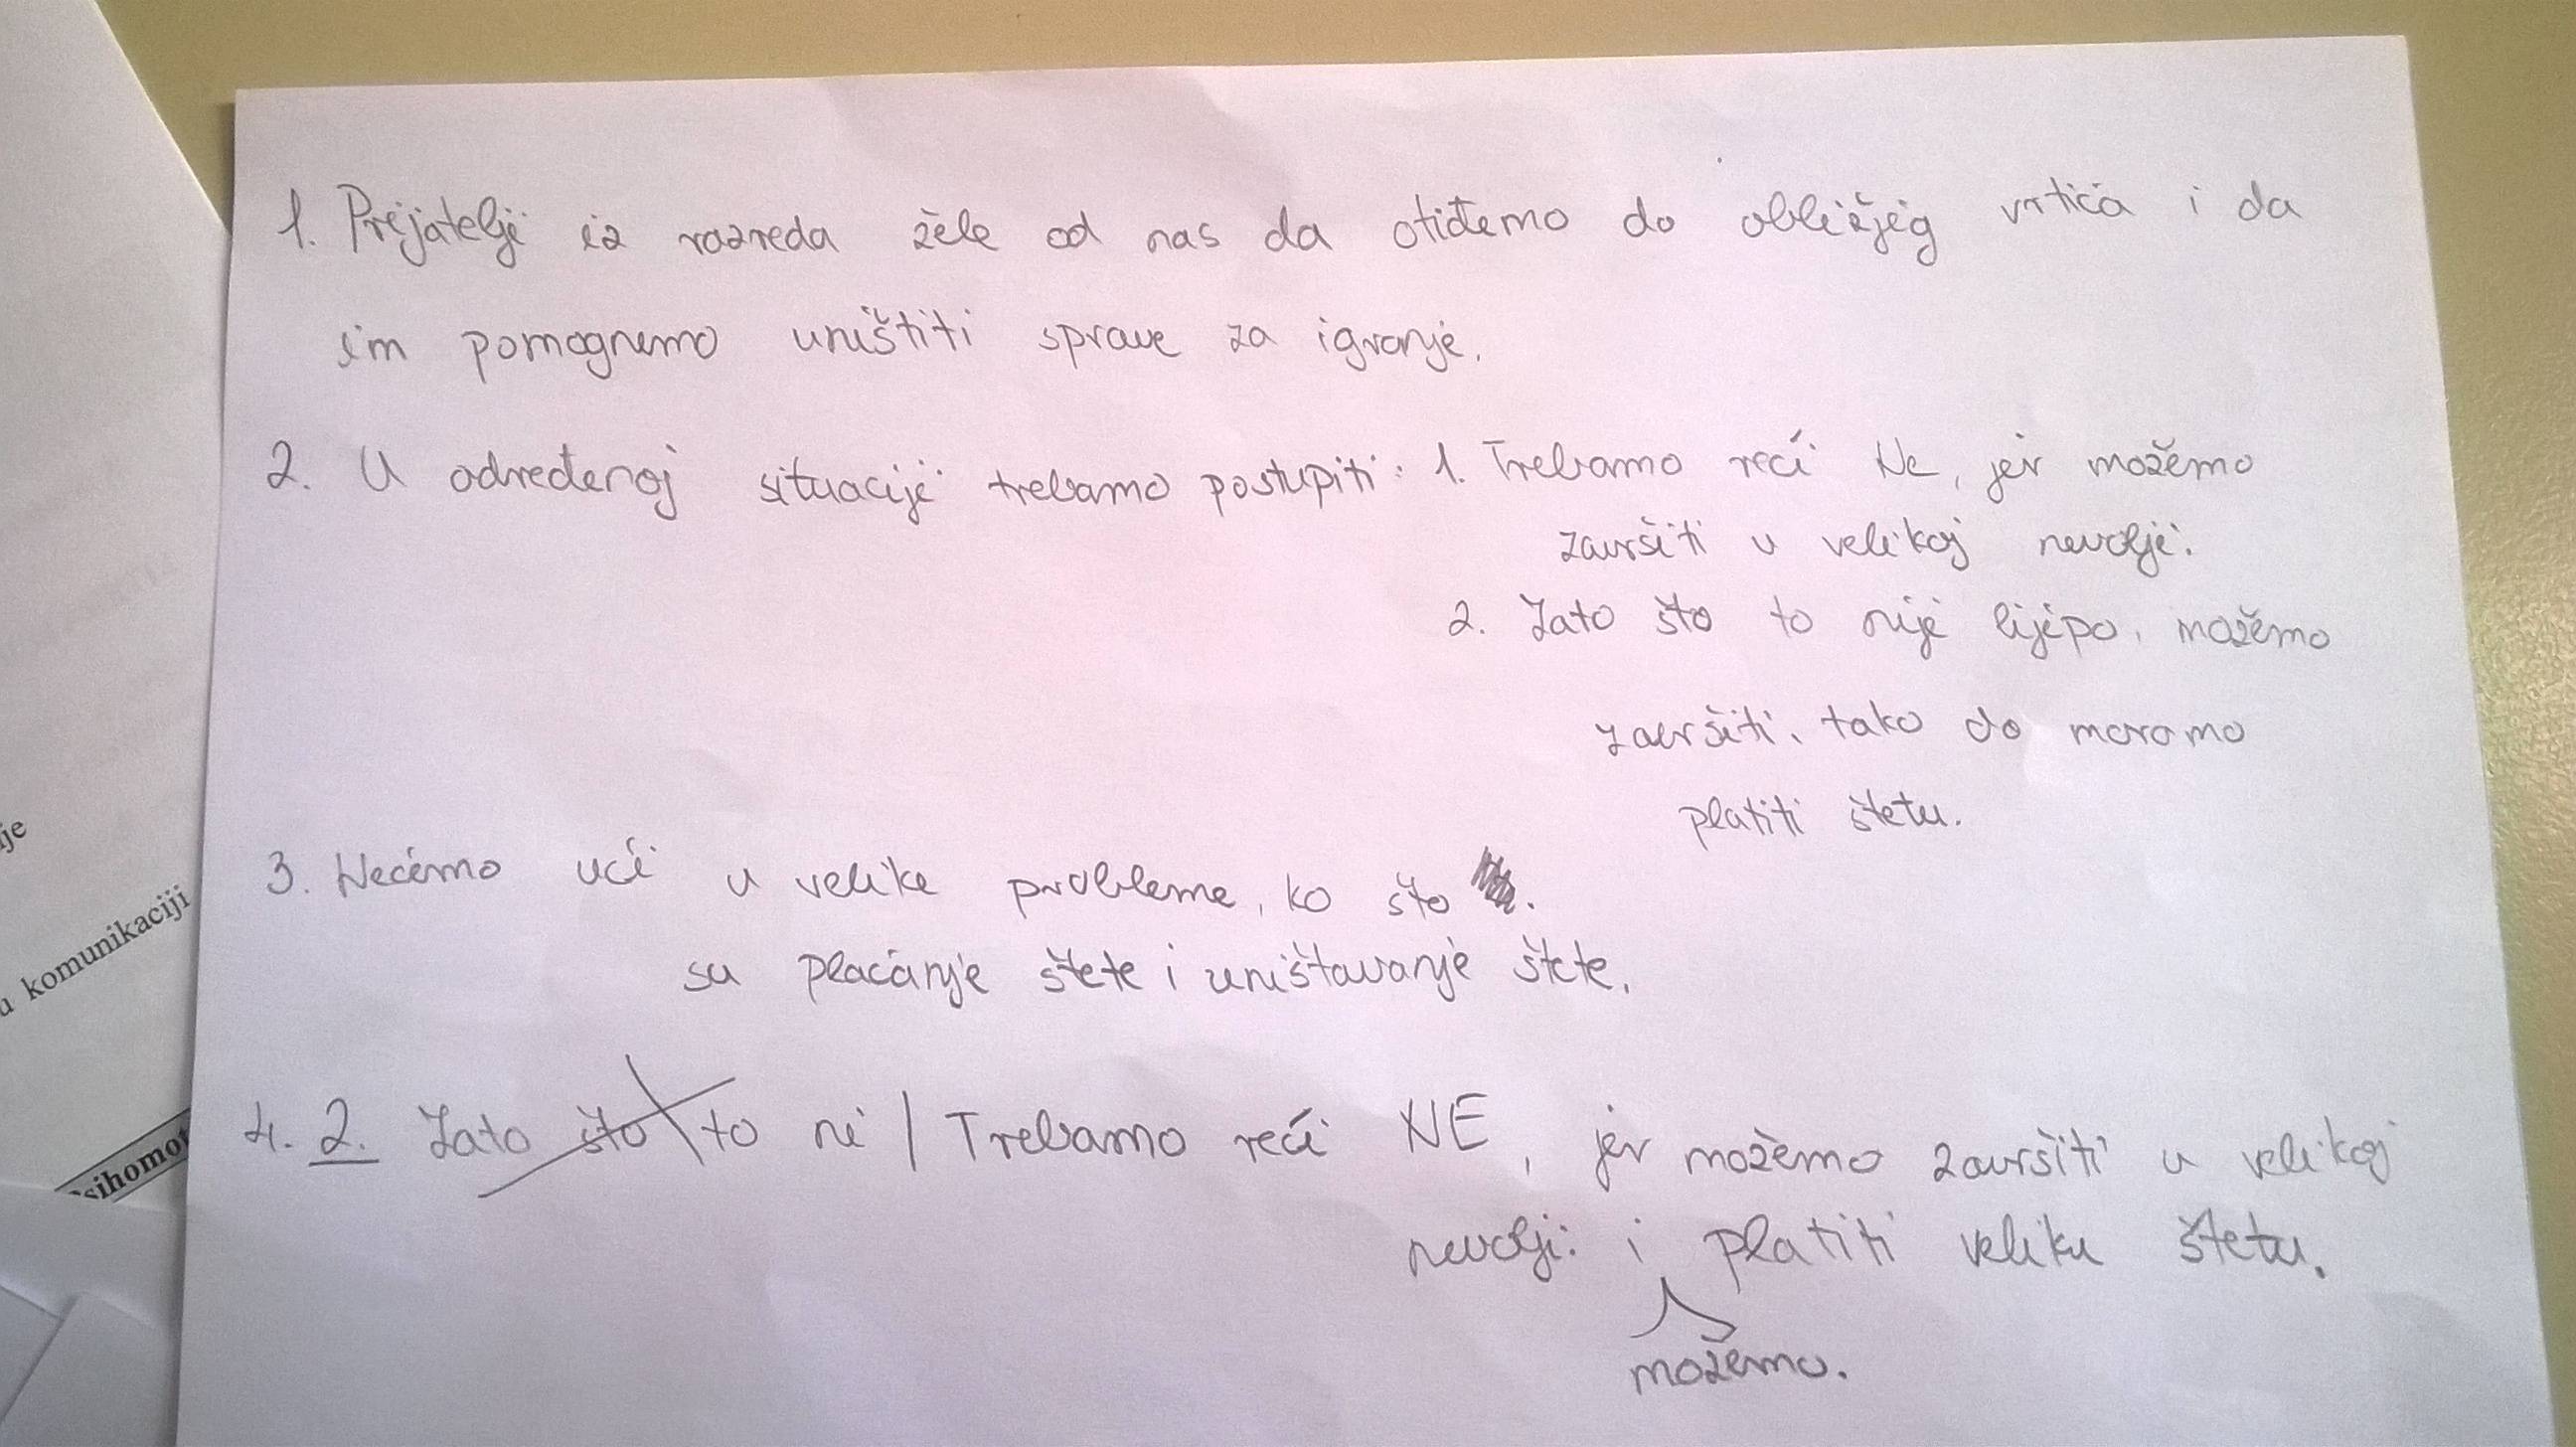 1. Prijatelji iz razreda žele od nas da otiđemo do obližjeg vrtića i da
im pomognemo uništiti sprave za igranje.
2. U određenoj situaciji trebamo postupiti: 1. Trebamo reći Ne, jer možemo
završiti u velikoj nevolji.
2. Zato što to nije lijepo, možemo
završiti, tako da moramo
platiti štetu.
3. Nećemo ući u velike probleme, ko što
su plaćanje štete i uništavanje štete.
4. 2. Zato što to ni / Trebamo reći NE, jer možemo završiti u velikoj
nevolji i platiti veliku štetu.
možemo.
je
u komunikaciji
sihomot